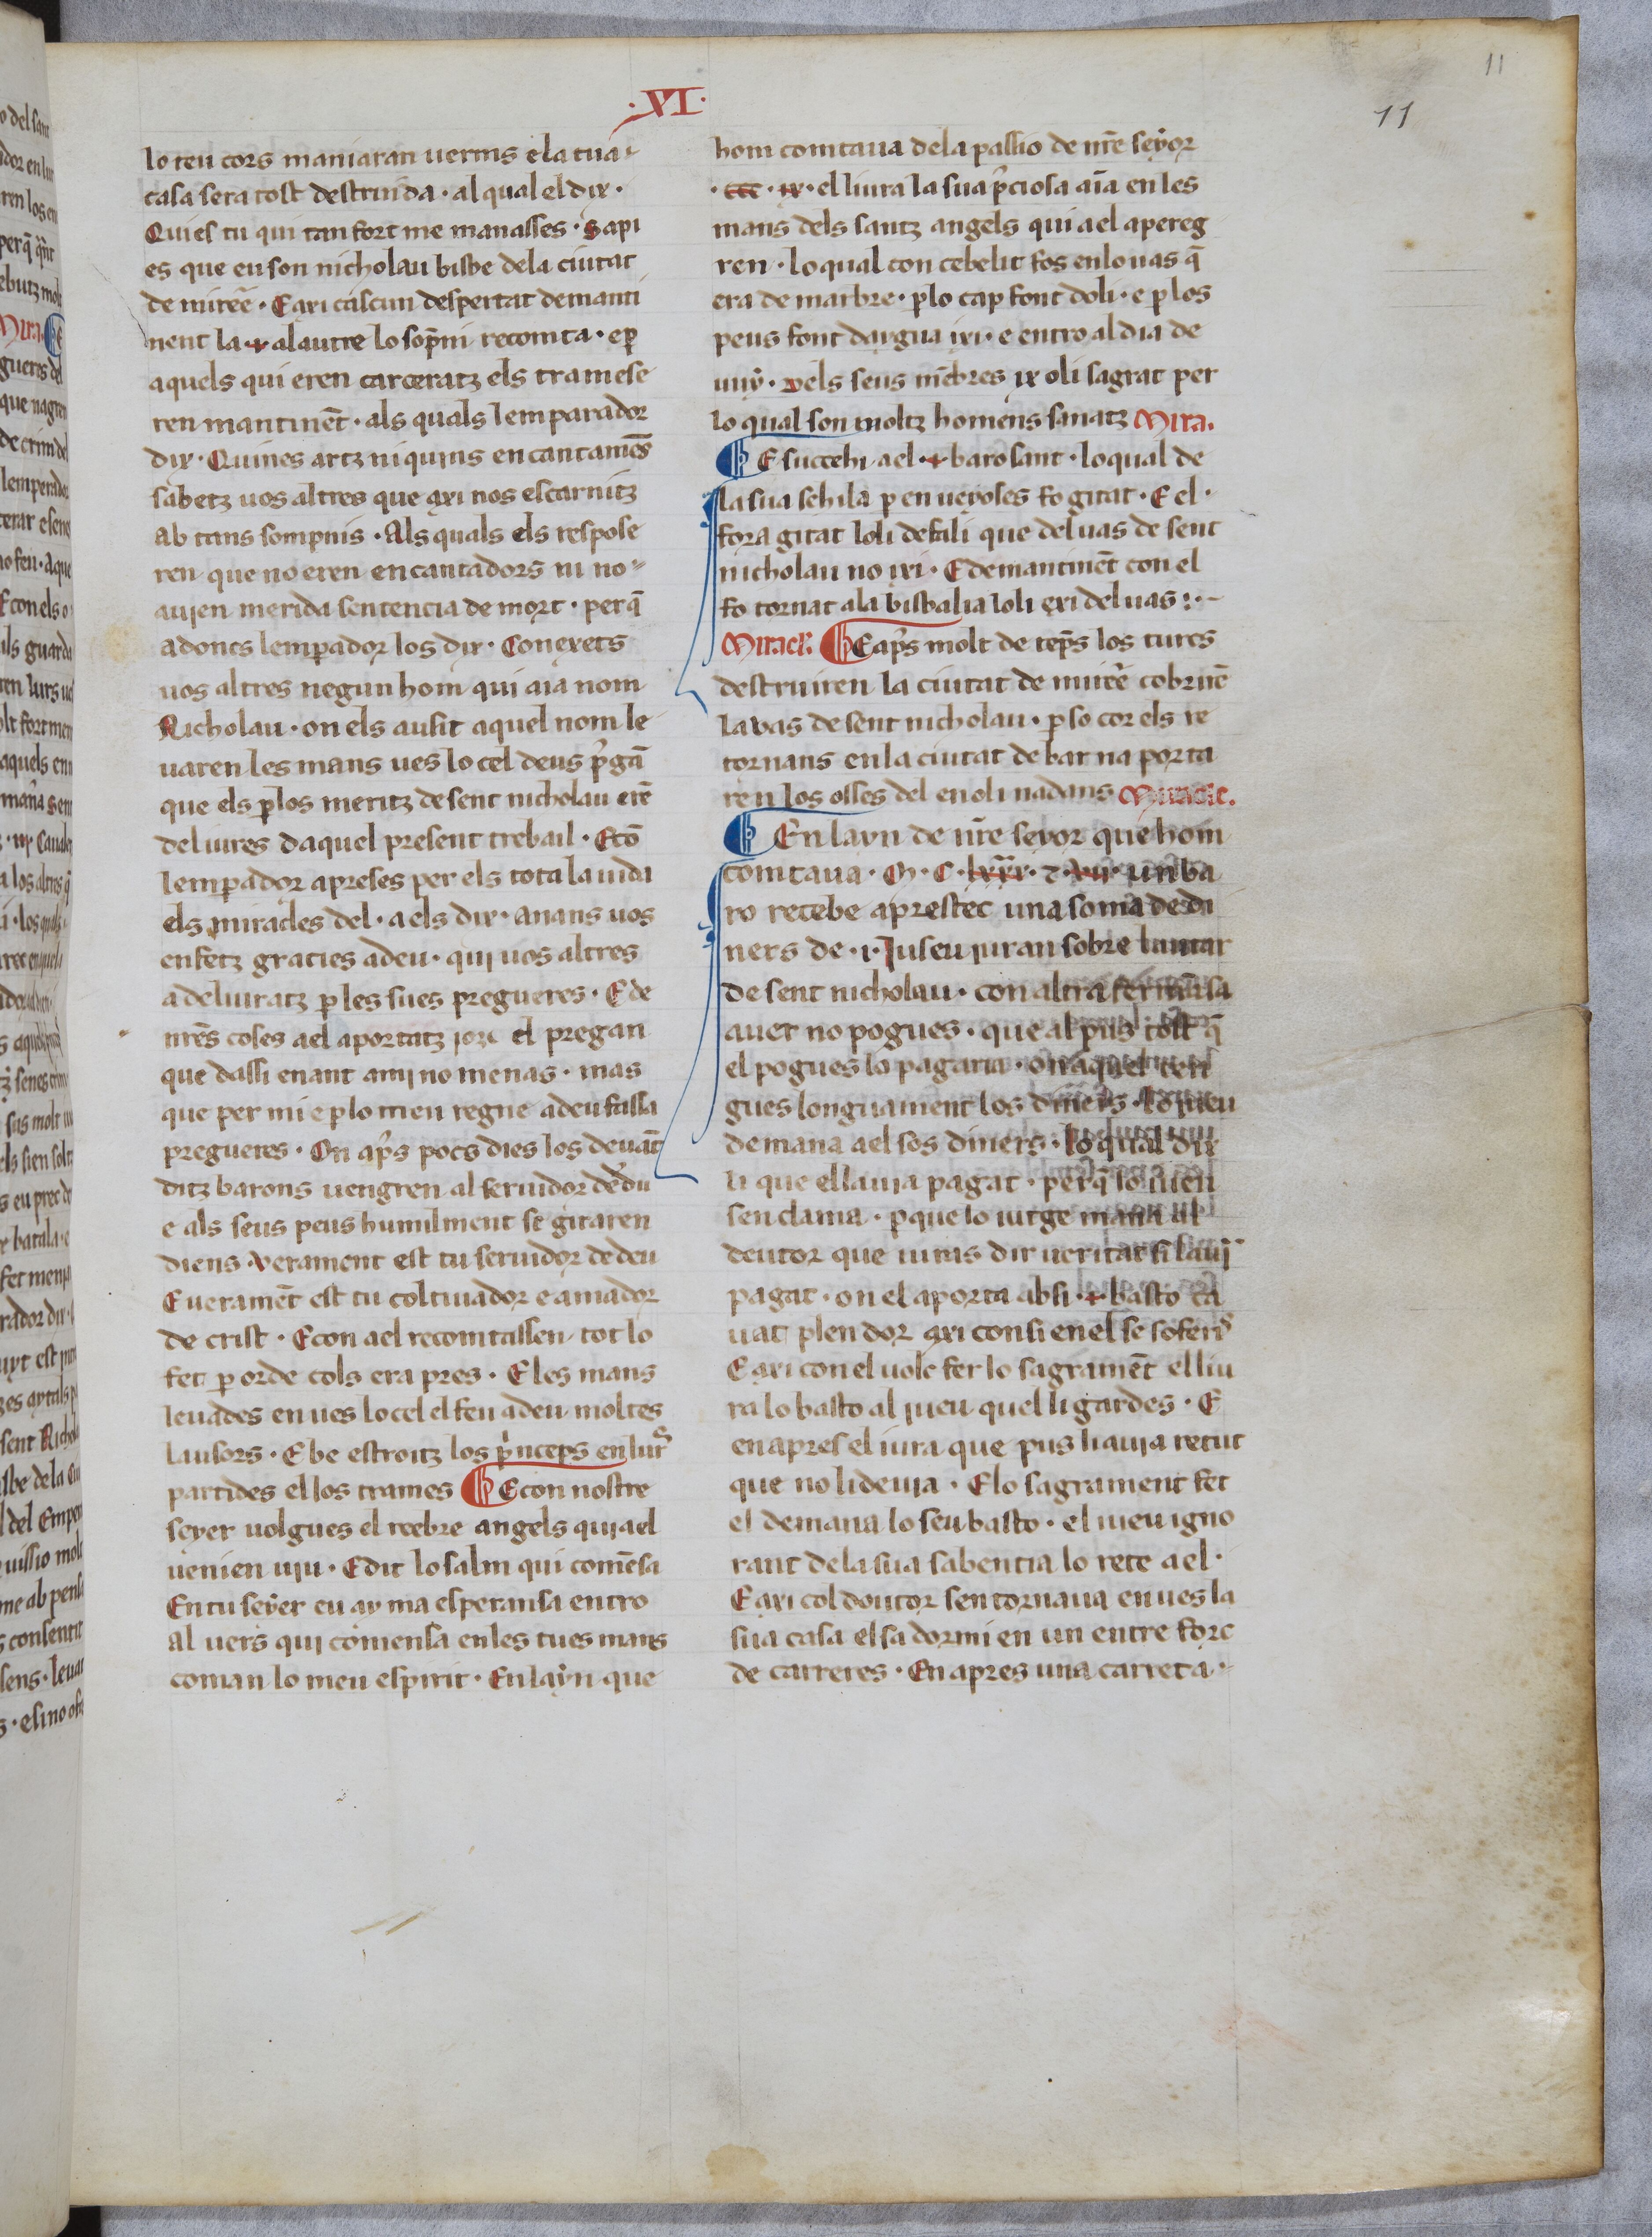 11
11
·VI·
lo teu cors maniaran uerms e la tua
casa sera tost destruida · al qual el dix ·
Qui es tu qui tan fort me manasses · Sapi
es que eu son nicholau bisbe dela ciutat
de mireē · E axi cascun despertat demanti
nent la · al autre lo sopni recomta · e ꝑ
aquels qui eren carceratz els tramese
ren mantinēt · als quals lemparador
dix · Quines artz ni quins encantamēs
sabetz uos altres que axi nos escarnitz
ab tans sompnis · Als quals els respose
ren que no eren encantadors ni no
auien merida sentencia de mort · per q̄
adoncs lemꝑador los dix · Conexets
uos altres negun hom qui aia nom
Nicholau · on els ausit aquel nom le
uaren les mans ues lo cel deus p̄gā
que els ꝑ los meritz de sent nicholau erē
deliures daquel present trebail · E cō
lemꝑador apreses per els tota la uida
els miracles del · a els dix · anans uos
en fetz gracies a deu · qui uos altres
a deliuratz ꝑ les sues pregueres · E de
mr̄es coses a el aportatz el pregan
que dassi enant a mi no menas · mas
que per mi e ꝑ lo meu regne a deu fassa
pregueres · On ap̄s pocs dies los deuāt
ditz barons uengren al seruidor de deu
e als seus peus humilment se gitaren
diens · verament est tu seruidor de deu
E ueramēt est tu coltiuador e amador
de crist · E con a el recomtassen tot lo
fet ꝑ orde cols era pres · E les mans
leuades en ues lo cel el feu a deu moltes
lausors · E be estroitz los p̄nceps en lurs
partides el los trames E con nostre
seyer uolgues el reebre angels qui a el
uenien uiu · E dit lo salm qui comēsa
En tu seyer eu ay ma esperansa entro
al uers qui comensa en les tues mans
coman lo meu espirit · En layn que
hom comtaua dela passio de nr̄e seyor
· ccc · ix · el liura la sua p̄ciosa aīa en les
mans dels santz angels qui a el apereg
ren · lo qual con cebelit fos en lo uas q̄
era de marbre · ꝑ lo cap font doli · e ꝑ los
peus font daygua ixi · e entro al dia de
uuy · dels seus mēbres ix oli sagrat per
lo qual son moltz homens sanatz Mira.
E succehi a el · baro sant · lo qual de
la sua sehila ꝑ enueyoses fo gitat · E el ·
fora gitat loli defali que del uas de sent
nicholau no ixi · E demantinēt con el
fo tornat ala bisbalia loli exi del uas :·
Miracl'. E ap̄s molt de tēps los turcs
destruiren la ciutat de mirē e obrirē
la uas de sent nicholau · ꝑ so cor els re
tornans en la ciutat de bar na porta
ren los osses del en oli nadans Miracle.
En layn de nr̄e seyor que hom
comtaua · M · C · lxxx · ⁊ · vii · un ba
ro recebe aprestec una soma de di
ners de · i · Juseu iuran sobre lautar
de sent nicholau · con altra fermāsa
auer no pogues · que al pus tost q̄
el pogues lo pagaria · on aquel ten
gues longuament los diners · lo iueu
demana a el sos diners · lo qual dix
li que el lauia pagat · per q̄ lo iueu
sen clama · ꝑ que lo iutge mana al
deutor que iuras dir ueritat si lauī
pagat · on el aporta ab si · basto ca
uat plen dor axi con si en el se soferis
E axi con el uolc fer lo sagramēt el liu
ra lo basto al iueu quel li gardes · E
en apres el iura que pus li auia retut
que no li deuia · E lo sagrament fet
el demana lo seu basto · el iueu igno
rant dela sua sabentia lo rete a el ·
E axi col deutor sen tornaua en ues la
sua casa el sa dormi en un entre forc
de carreres · En apres una carreta ·